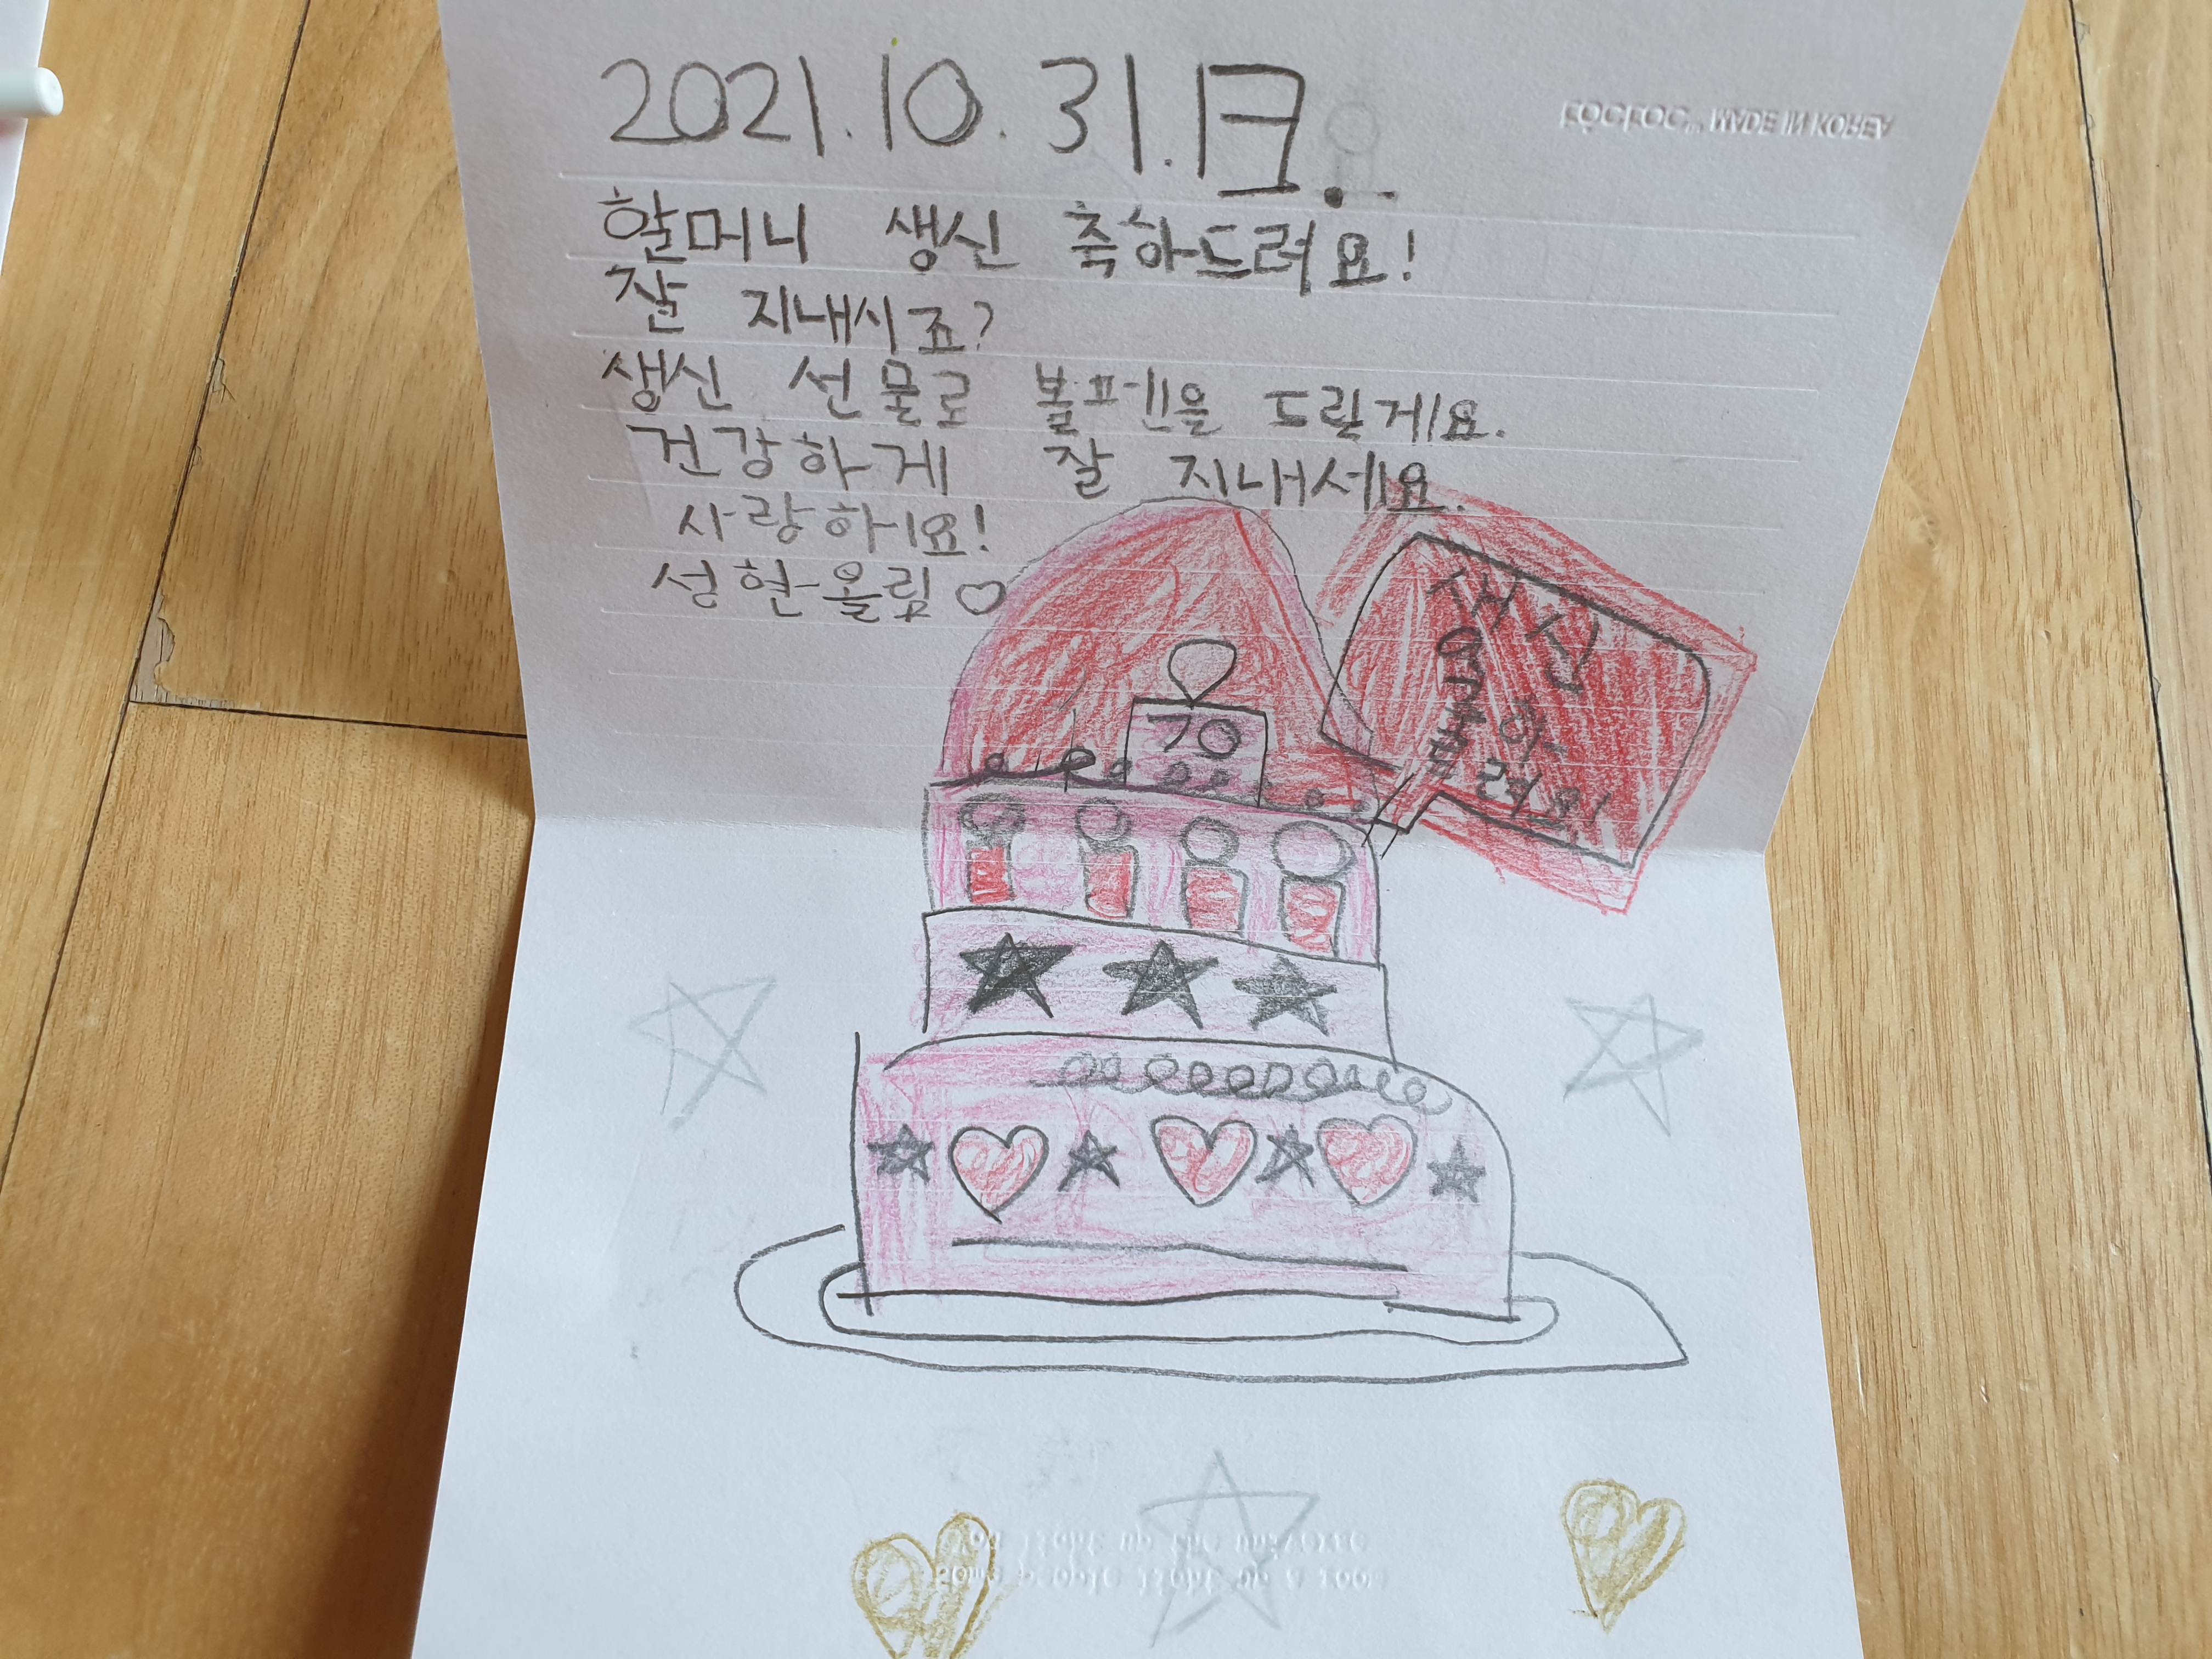 2021.10.31.日.
toctoc MADE IN KOREA
할머니 생신 축하드려요!
잘 지내시죠?
생신 선물로 볼펜을 드릴게요.
건강하게 잘 지내세요.
사랑하요!
성현 올림♡
생신
축하
드려요!
70
some people light up a room
you light up the universe